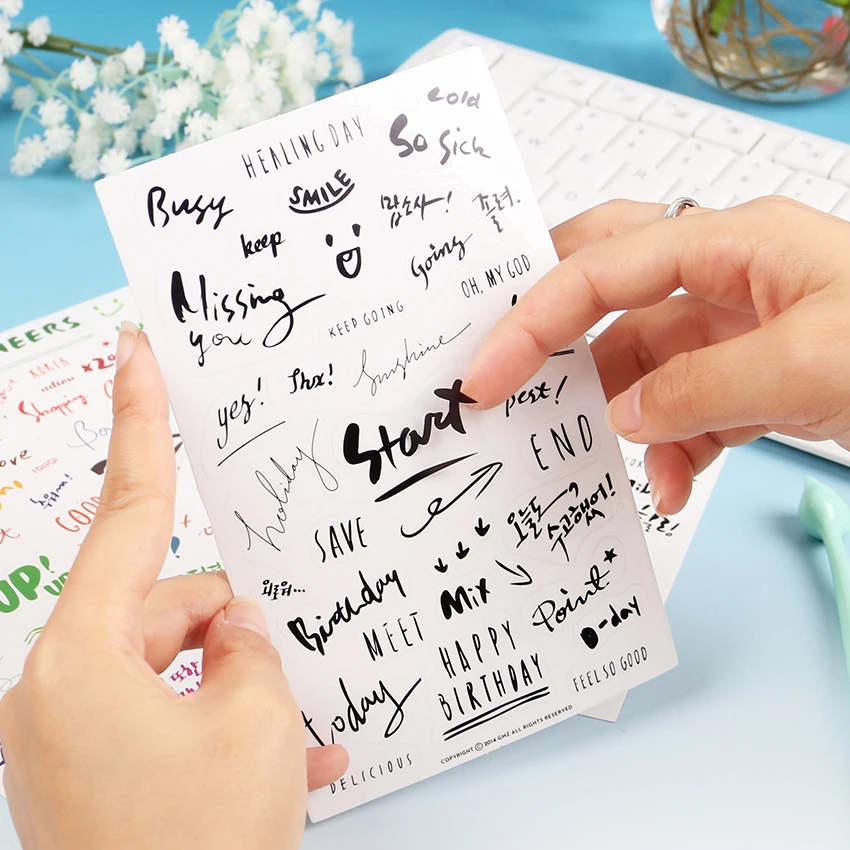 cold
HEALING DAY
So Sick
SMILE
Busy
맙소사!
졸려.
keep
Going
OH, MY GOD
Missing
you
KEEP GOING
Sunshine
yes!
Thx!
Start
best!
END
holiday
SAVE
오늘도
수고했어!
외로워...
Birthday
Mix
Point
D-day
MEET
HAPPY
BIRTHDAY
FEEL SO GOOD
today
COPYRIGHT © 2014 GMZ ALL RIGHTS RESERVED
DELICIOUS
NEERS
x20
Shopping
GOO
UP!
또한